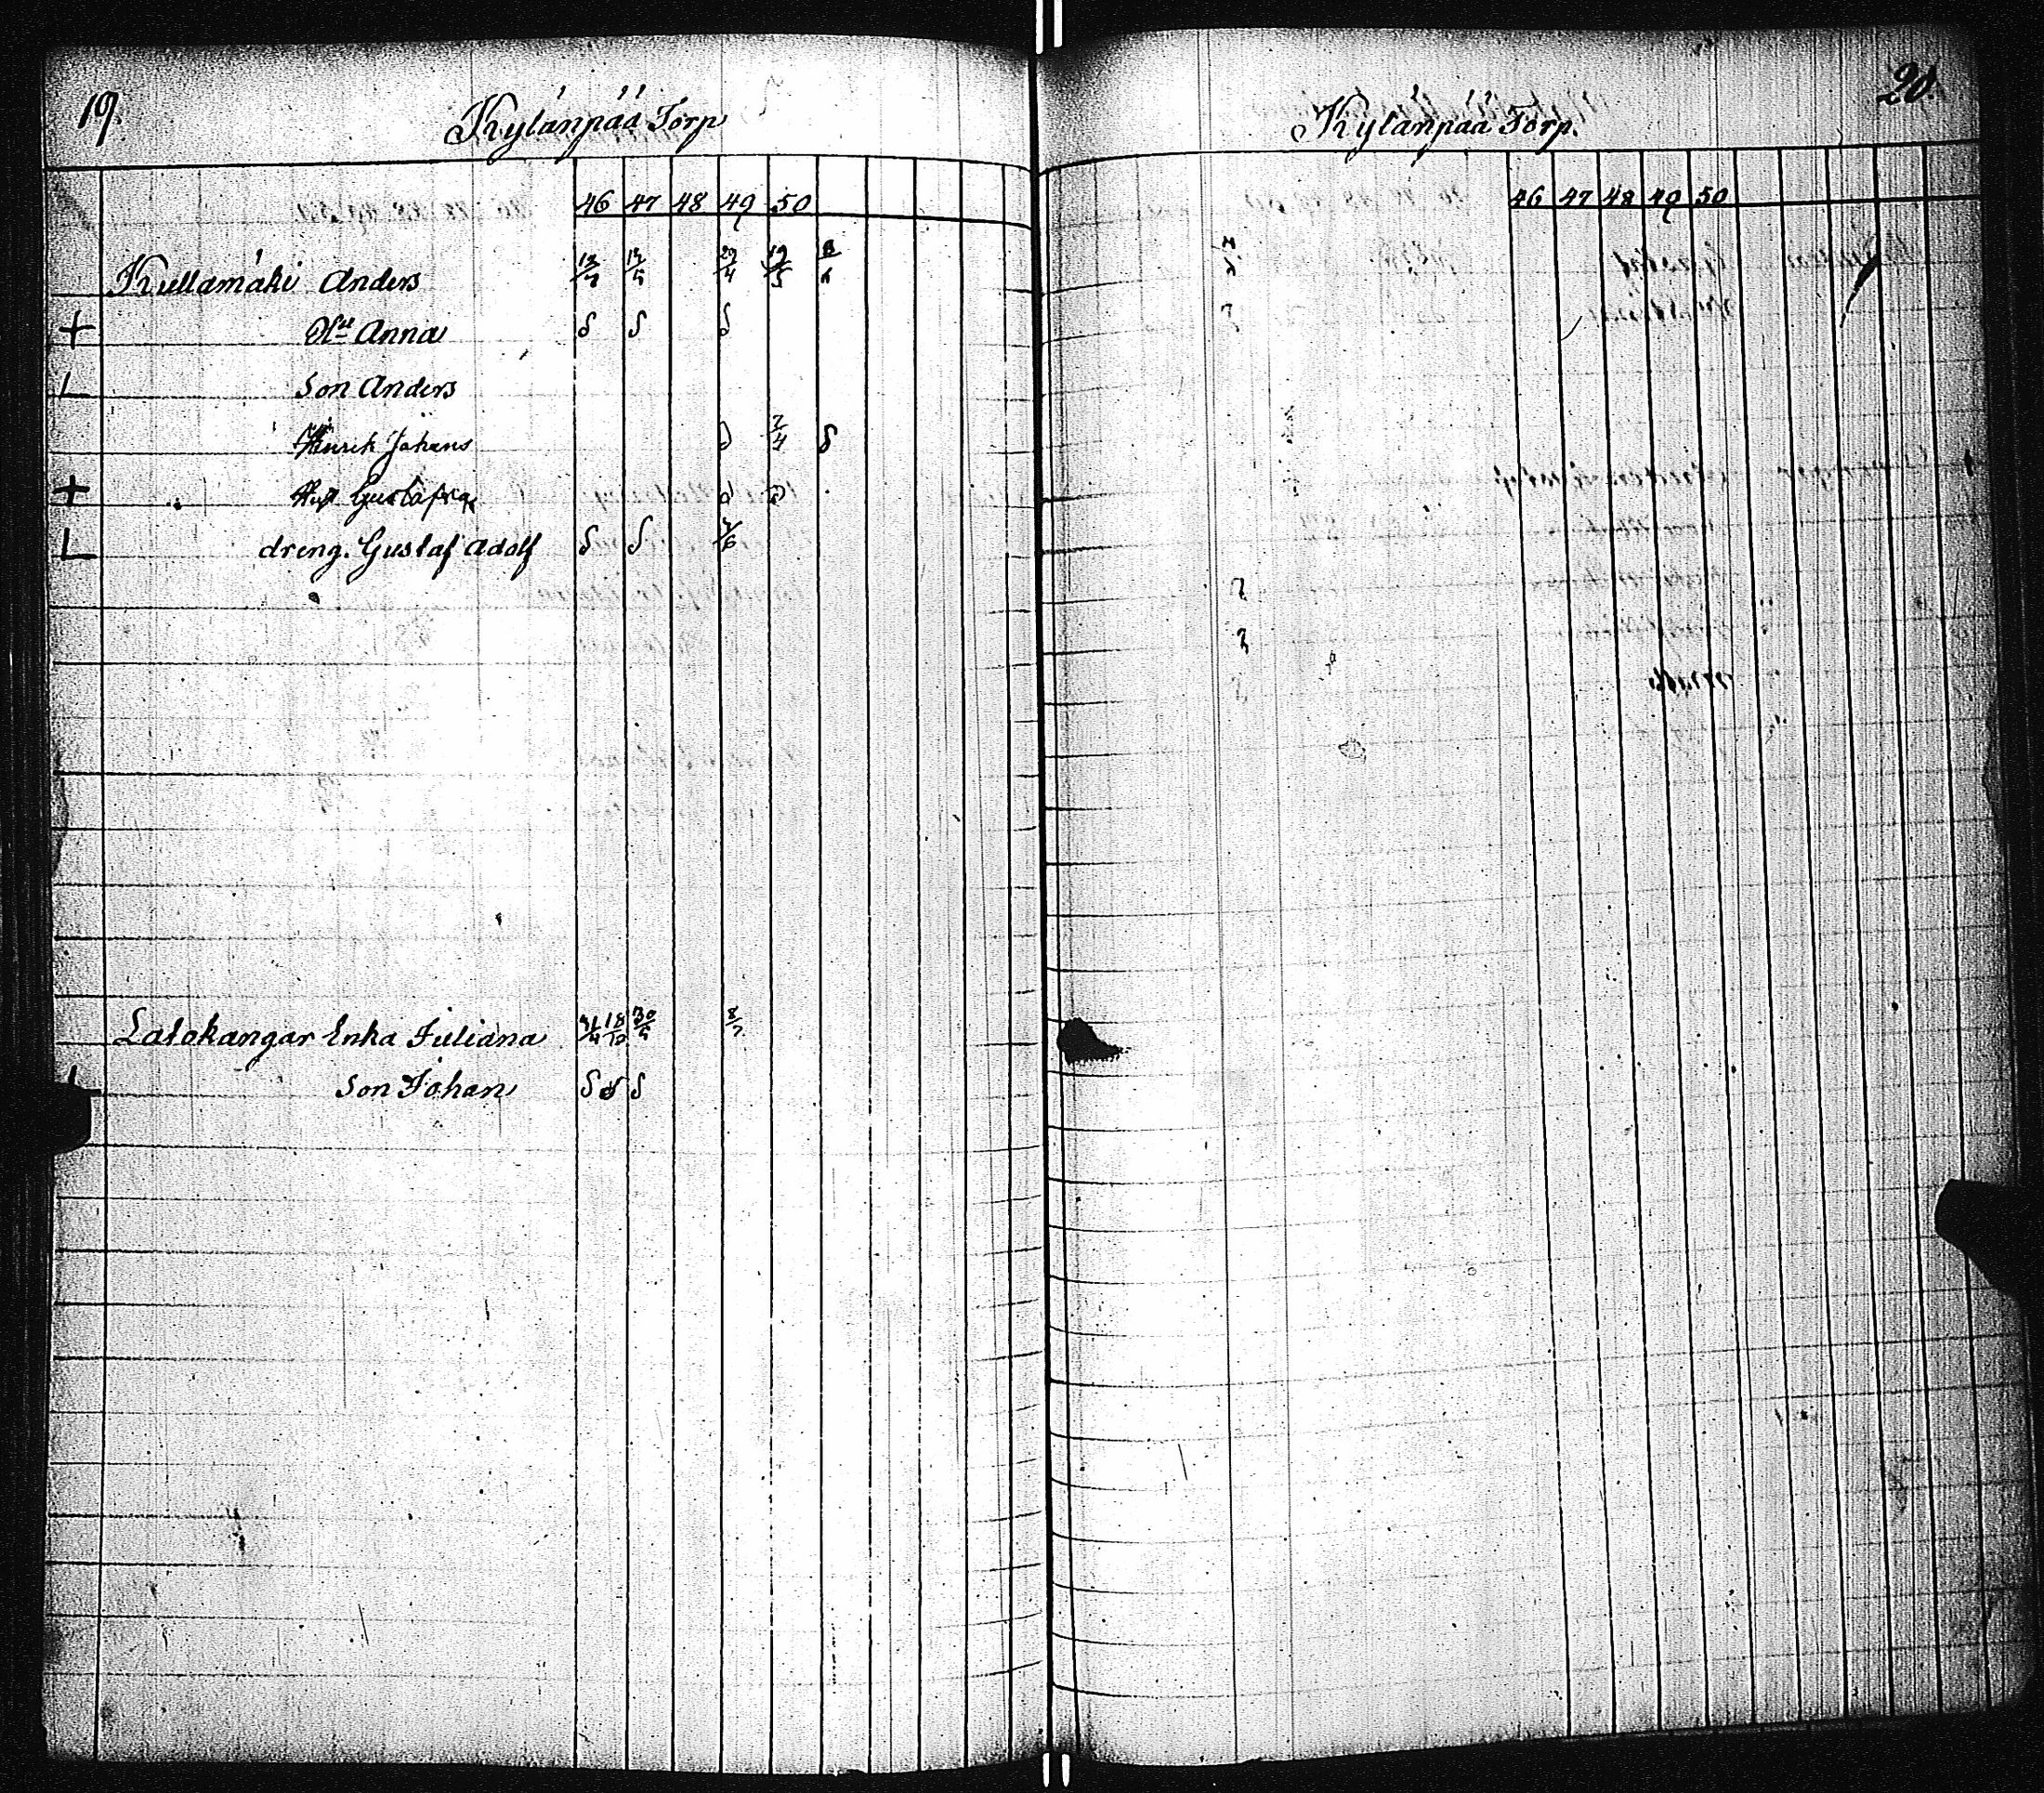 19.
Kylänpää Torp
46 47 48 49 50
Kullamäki Anders 13/7 13/5 29/4 19/5 8/6
+ Hu Anna S S S
L Son Anders
Henrik Johans S 7/4 S
+ Gustafva
L dreng. Gustaf Adolf S S 7/6
Latokangar Enka Juliana 18/10 30/5 8/7
Son Johan S S S
20.
Kylänpää Torp.
46 47 48 49 50